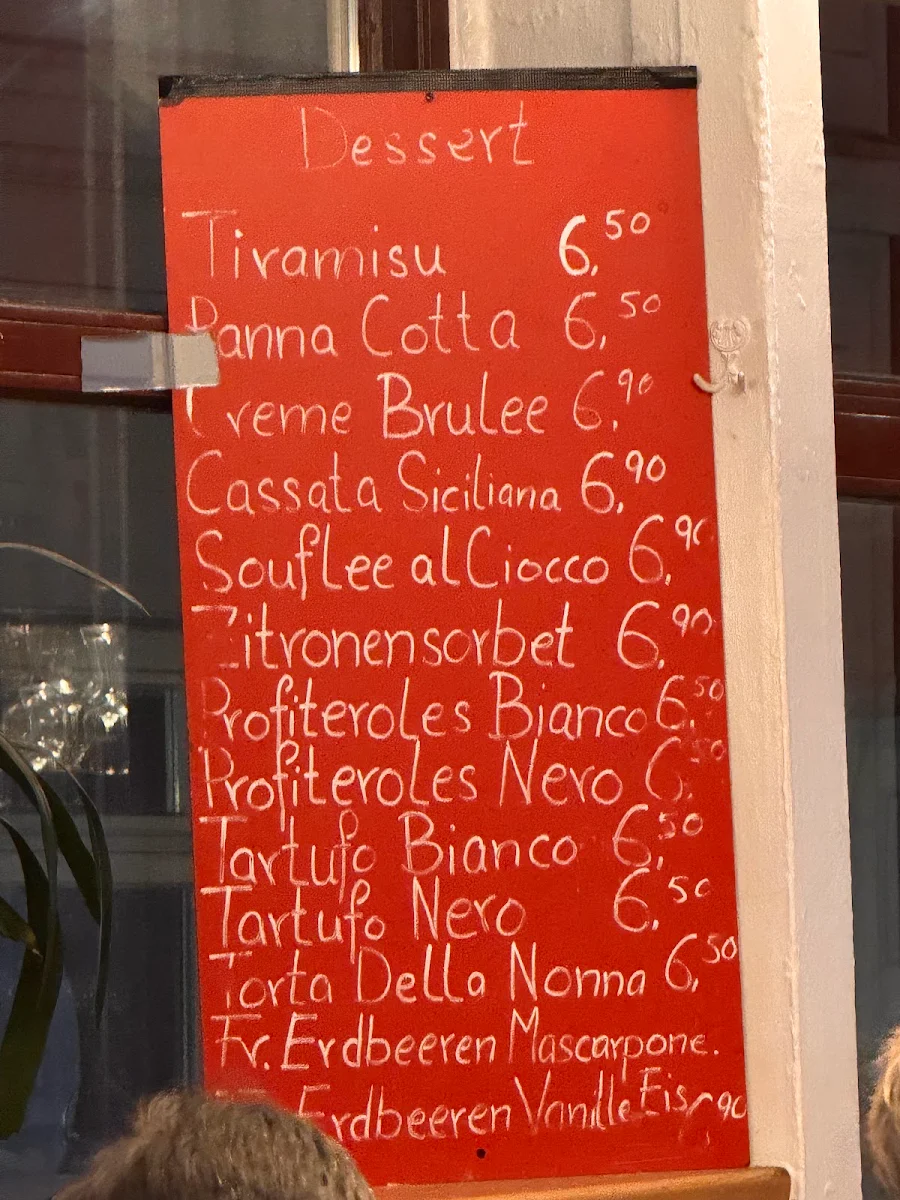 Dessert
Tiramisu 6,50
Panna Cotta 6,50
Creme Brulee 6,90
Cassata Siciliana 6,90
Souflee al Ciocco 6,90
Zitronensorbet 6,90
Profiteroles Bianco 6,50
Profiteroles Nero 6,50
Tartufo Bianco 6,50
Tartufo Nero 6,50
Torta Della Nonna 6,50
Fr. Erdbeeren Mascarpone.
Erdbeeren Vanille Eis 90